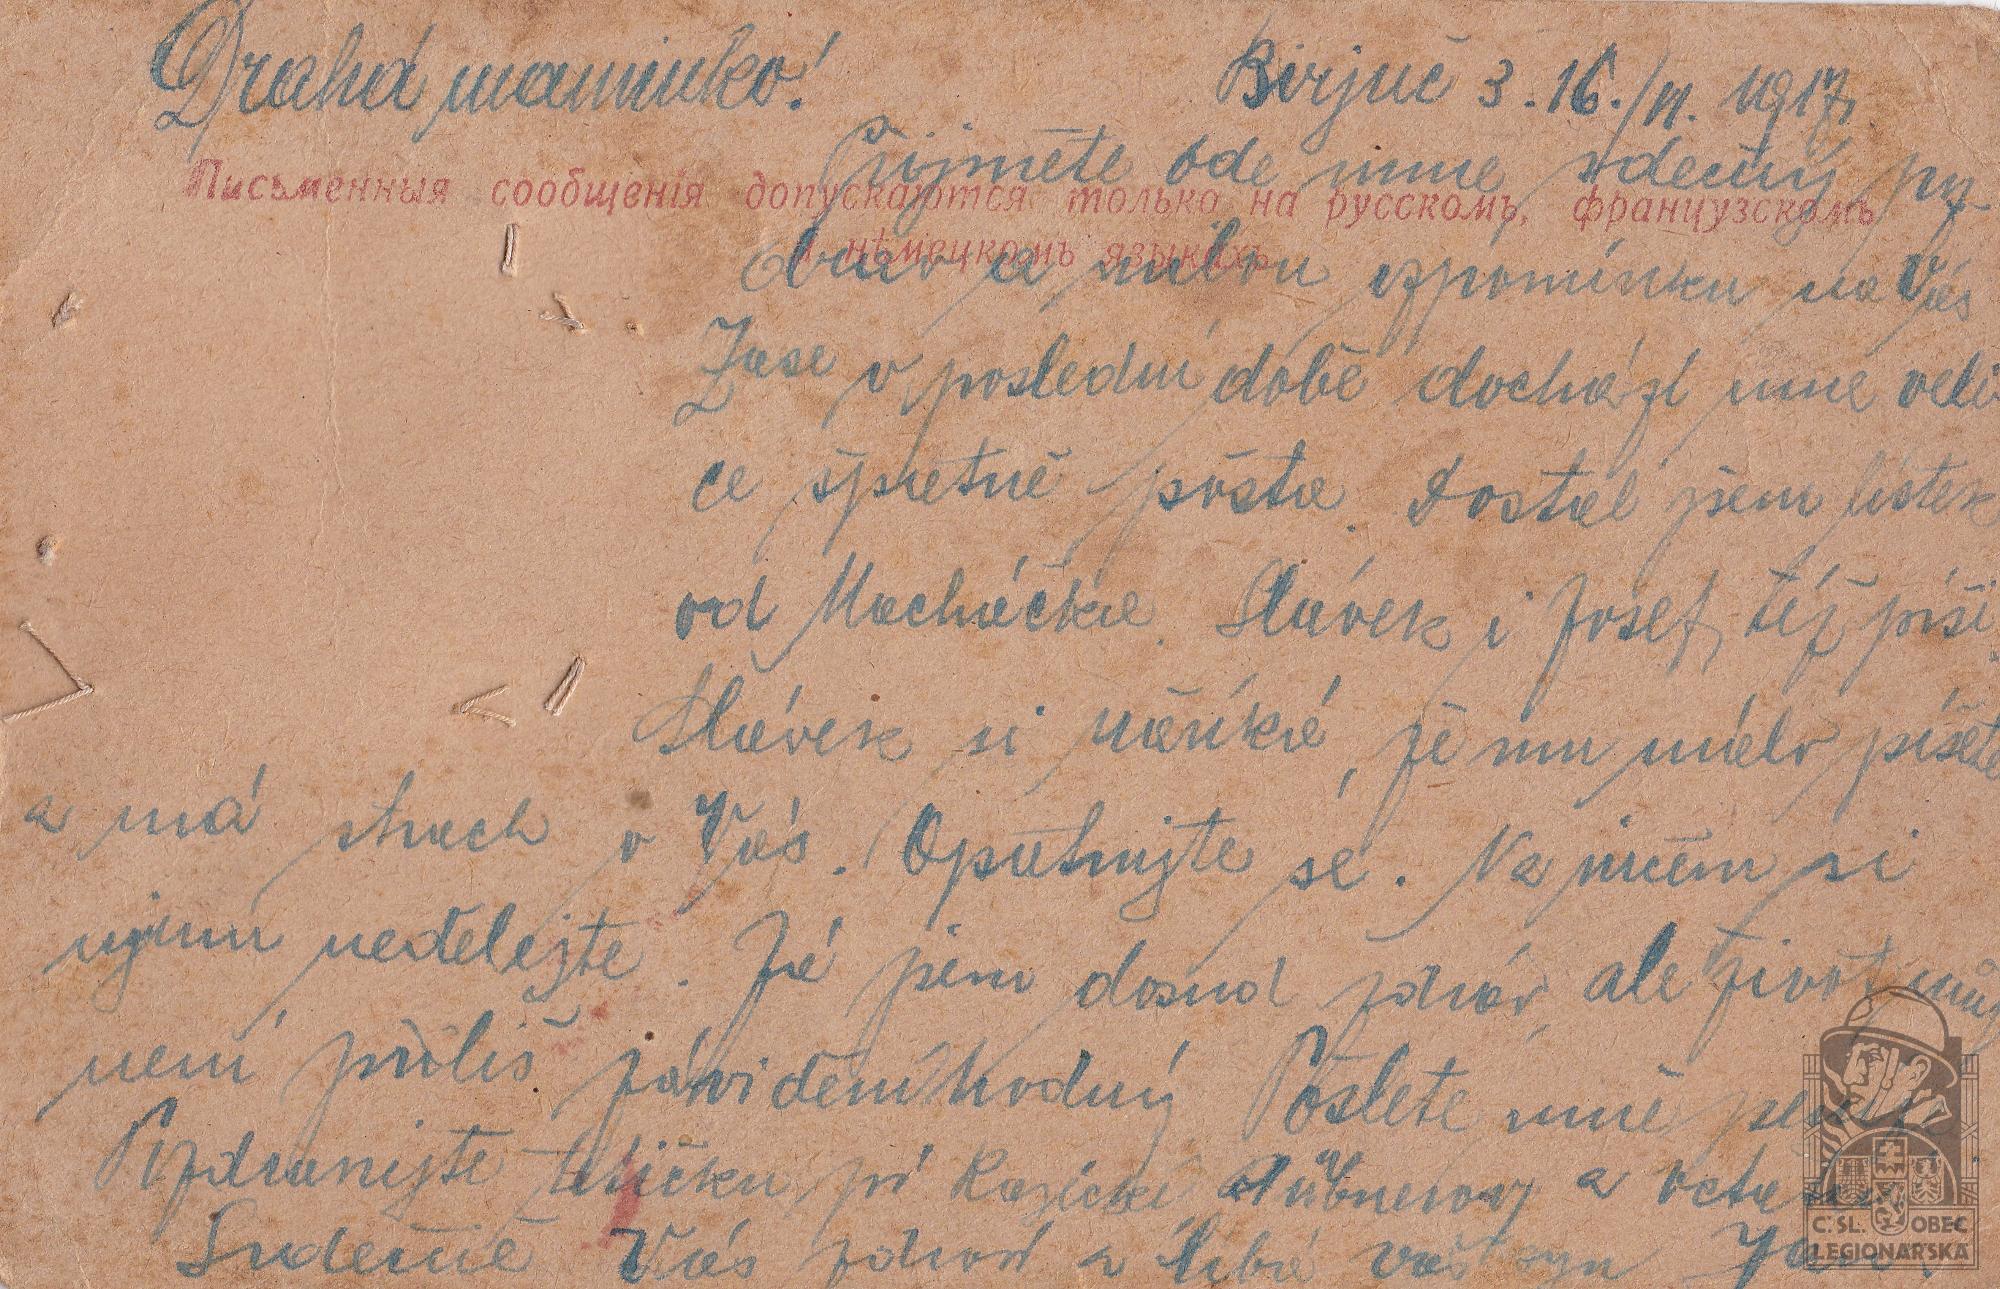 Drahá maminko! Birjuč 3.16./II. 1917.
Přijměte ode mne srdečný poz-
Письменныя сообщенія допускаются только на русскомъ, французскомъ
и нѣмецкомъ языкахъ
a milou vzpomínku na Vás
Zase v poslední době dochází mne veli
ce špatně pošta. Dostal jsem lístek
od Macháčka. Slávek i Josef též píší.
Slávek si naříká, že mu málo píšete
a má strach o Vás. Opatrujte se. Na ničem si
újmu nedělejte. Já jsem dosud zdráv, ale život můj
není příliš záviděníhodný Pošlete mně
Pozdravujte tetičku, pí Hübnerovy a
Srdečně Vás zdraví a líbá váš syn
Č. SL. OBEC
LEGIONÁŘSKÁ